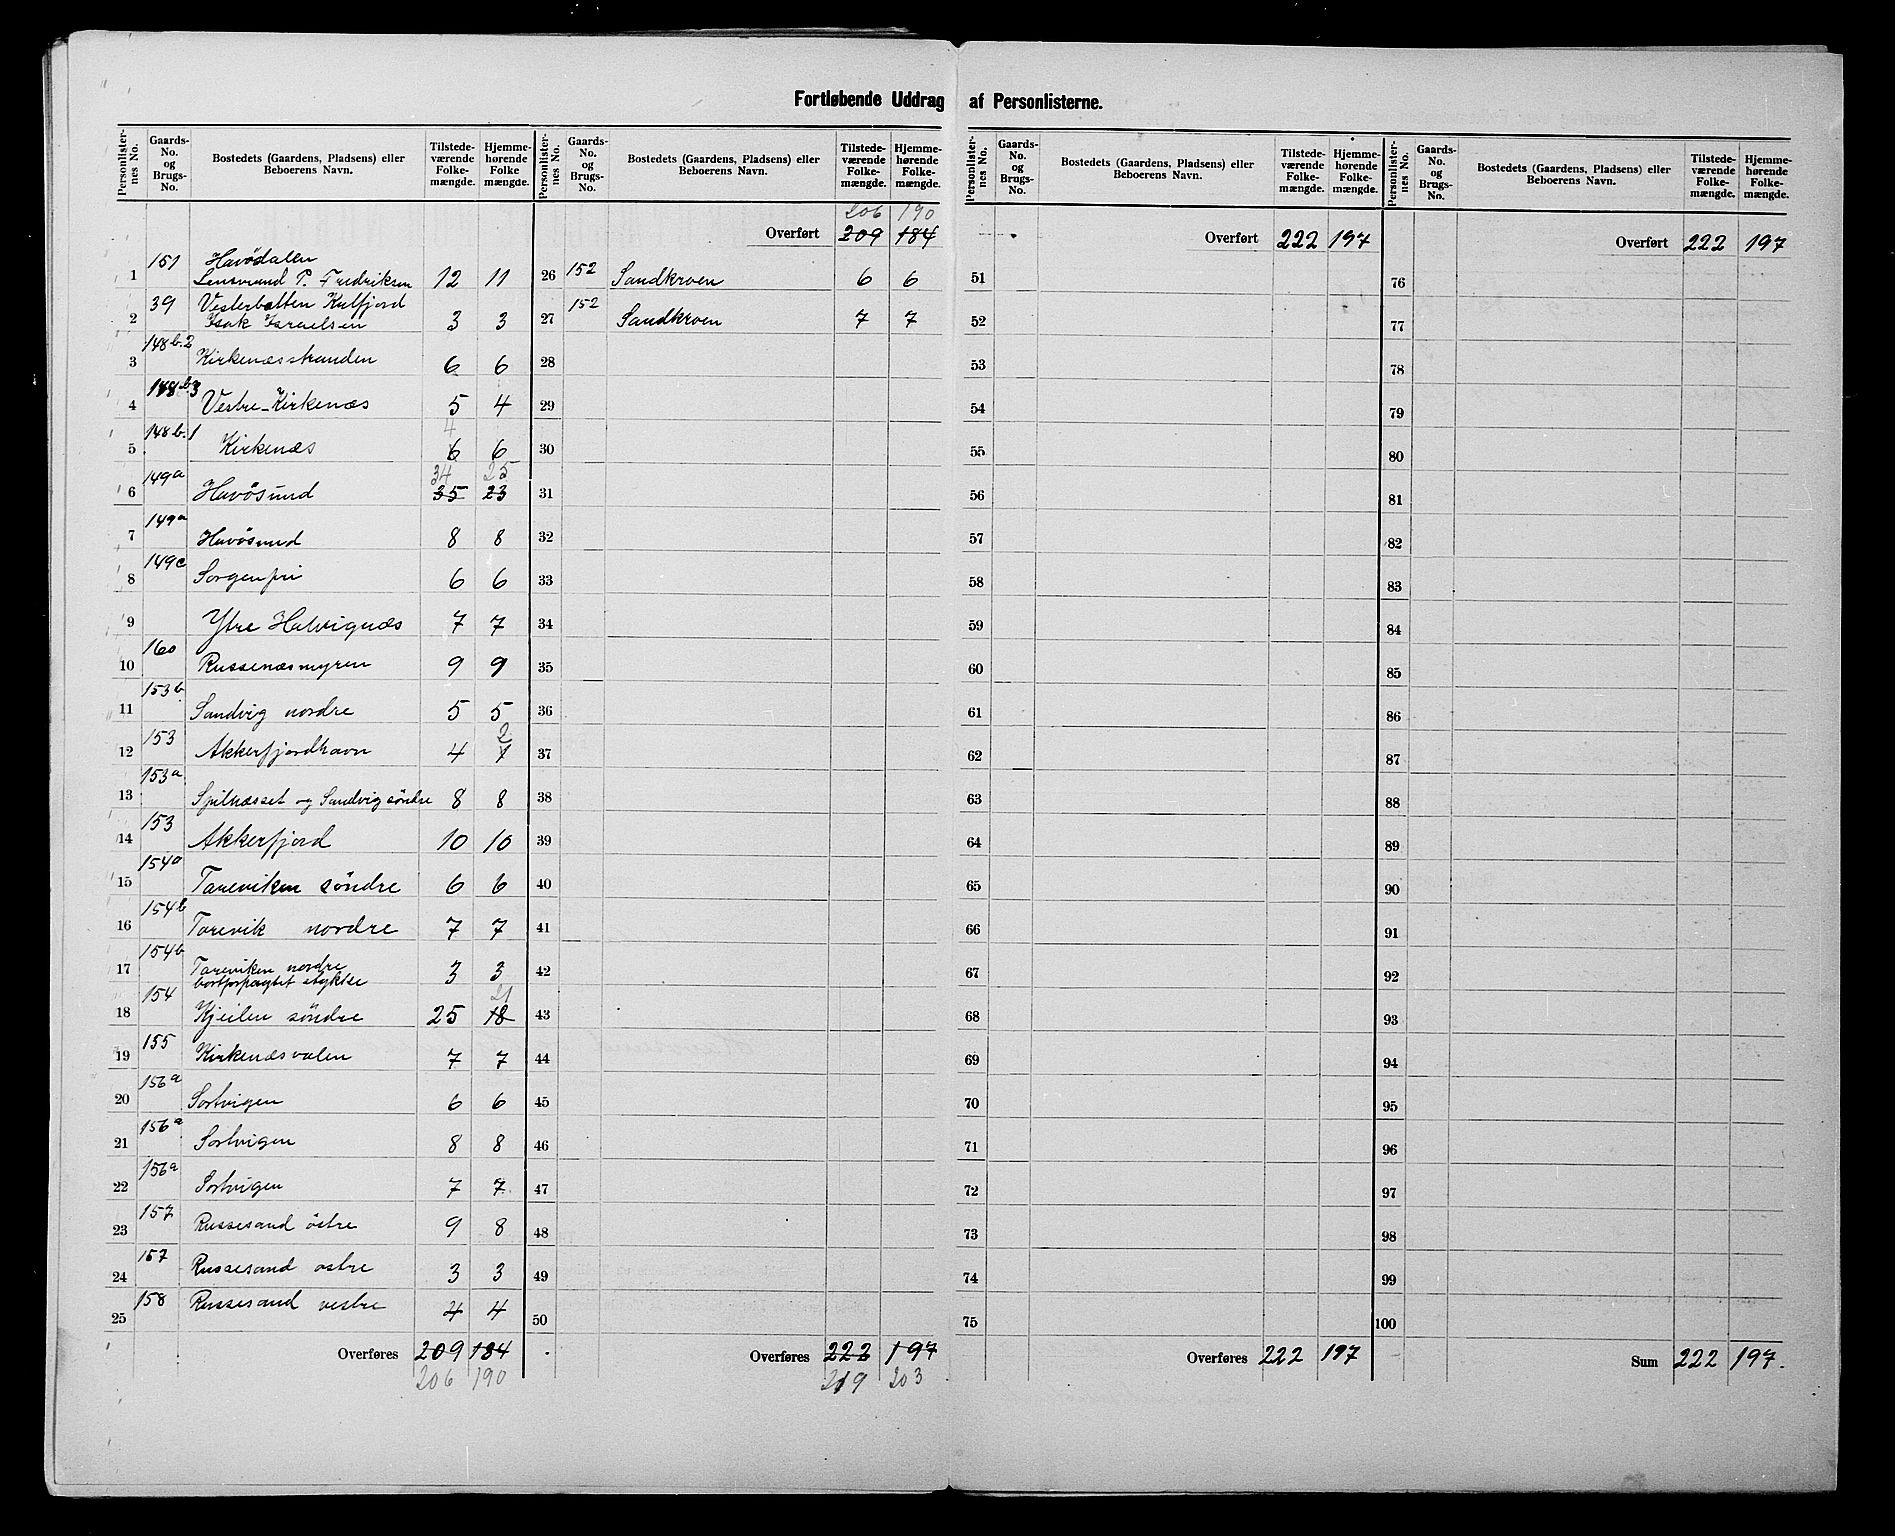 Fortløbende Uddrag af Personlisterne.
Personlister-nes No. | Gaards-No. og Brugs-No. | Bostedets (Gaardens, Pladsens) eller Beboerens Navn. | Tilstede-værende Folke-mængde. | Hjemme-hørende Folke mængde.
1 151 Havödalen
P. Fredriksen 12 11
2 39 Vesterbotten Kulfjord
Isak Israelsen 3 3
3 148 b.2 Kirkenæsstranden 6 6
4 148 b3 Vestre-Kirkenæs 5 4
4
5 148 b.1 Kirkenæs 6 6
34 25
6 149a Havösund 35 23
7 149a Havösund 8 8
8 149c Sorgenfri 6 6
9 Ytre Halvignæs 7 7
10 160 Russenæsmyren 9 9
11 153b Sandvig nordre 5 5
2
12 153 Akkerfjordhavn 4 1
13 153a Spilnæsset og Sandvig söndre 8 8
14 153 Akkerfjord 10 10
15 154a Tareviken söndre 6 6
16 154b Tarevik nordre 7 7
17 154b Tareviken nordre
bortforpagtet stykke 3 3
21
18 154 Kjeilen söndre 25 18
19 155 Kirkenæsvalen 7 7
20 156a Sortvigen 6 6
21 156a Sortvigen 8 8
22 156a Sortvigen 7 7
23 157 Russesand östre 9 8
24 157 Russesand ostre 3 3
25 158 Russesand vestre 4 4
Overføres 209 184
206 190
Personlister-nes No. | Gaards-No. og Brugs-No. | Bostedets (Gaardens, Pladsens) eller Beboerens Navn. | Tilstede-værende Folke-mængde. | Hjemme-hørende Folke-mængde.
206 190
Overført 209 184
26 152 Sandkroen 6 6
27 152 Sandkroen 7 7
28
29
30
31
32
33
34
35
36
37
38
39
40
41
42
43
44
45
46
47
48
49
50
Overføres 222 197
219 203
Personlister-nes No. | Gaards-No. og Brugs-No. | Bostedets (Gaardens, Pladsens) eller Beboerens Navn. | Tilstede-værende Folke-mængde. | Hjemme-hørende Folke-mængde.
Overført 222 197
51
52
53
54
55
56
57
58
59
60
61
62
63
64
65
66
67
68
69
70
71
72
73
74
75
Overføres 222 197
Personlister-nes No. | Gaards-No. og Brugs-No. | Bostedets (Gaardens, Pladsens) eller Beboerens Navn. | Tilstede-værende Folke-mængde. | Hjemme-hørende Folke-mængde.
Overført 222 197
76
77
78
79
80
81
82
83
84
85
86
87
88
89
90
91
92
93
94
95
96
97
98
99
100
Sum 222 197.